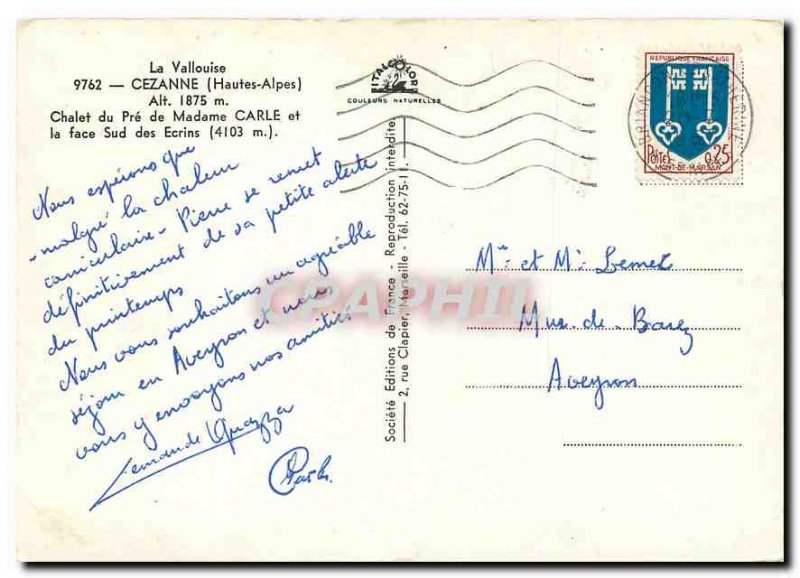 La Vallouise
9762 — CEZANNE (Hautes-Alpes)
Alt. 1875 m.
Chalet du Pré de Madame CARLE et
la face Sud des Ecrins (4103 m.).
ITALCOLOR
COULEURS NATURELLES
REPUBLIQUE FRANÇAISE
Postes 0,25
MONT-DE-MARSAN
Nous espérons que
- malgré la chaleur
caniculaire - Pierre se remet
définitivement de sa petite alerte
du printemps
Nous vous souhaitons un agréable
séjour en Aveyron et nous
vous y envoyons nos amitiés
Société Editions de France - Reproduction interdite
2, rue Clapier, Marseille - Tél. 62-75-11.
CPAPHIL
Mme et Mr
Mur-de-Barez
Aveyron